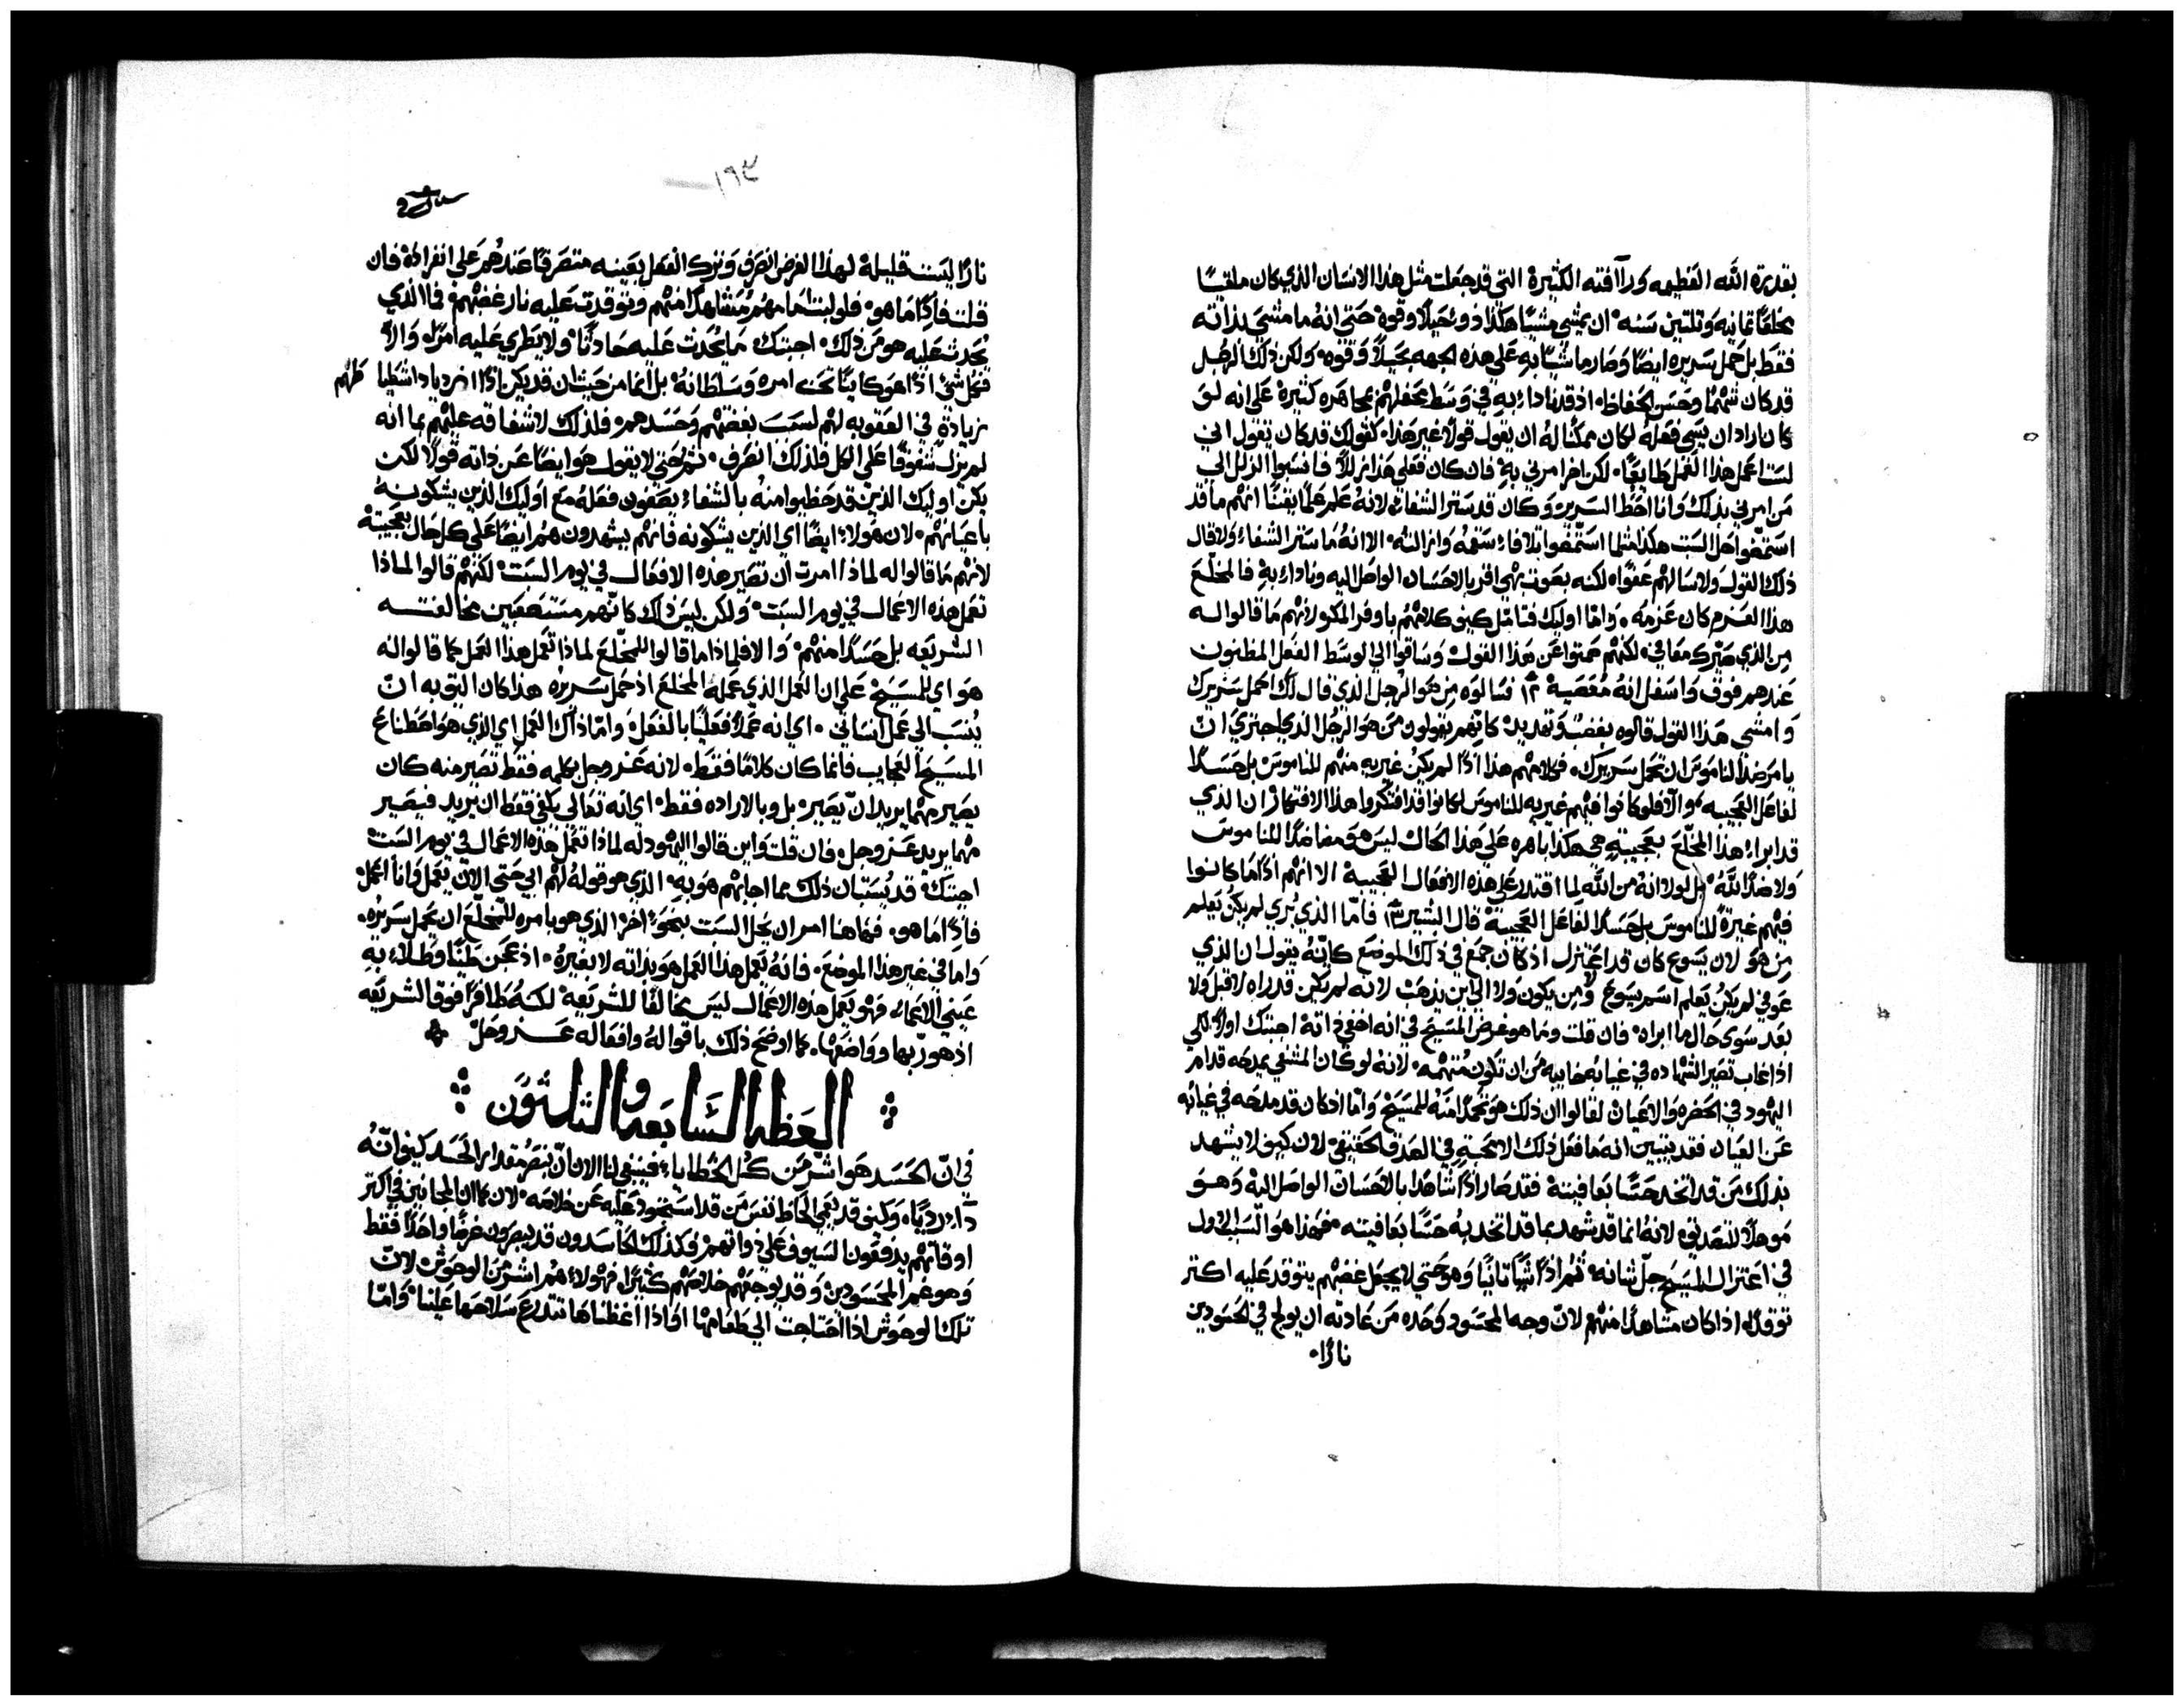 بقدرة الله العظيمه ورآافته الكثيرة التي قد جعلت مثل هذا الانسان الذي كان ملقيًا
مخلعًا ثمانيه وثلثين سنه ان يمشي مشيًا هكذا ذو حيلًا وقوة حتى انه ما مشي بذاته
فقط بل حمل سريره ايضًا وصار ماشيًا به على هذه الجهه بحيلًا وقوه ولكن ذلك الرجل
قد كان شهمًا وحسن الحفاظ اذ قد نادا به في وسط محفلهم بمجاهره كثيرة على انه لو
كان اراد ان يسي فعله لكان ممكنًا له ان يقول قولًا غير هذا كقولك قد كان يقول اني
لست اعمل هذا العمل طايعًا لكن اخر امرني به فان كان فعلي هذا زللًا فانسبوا الزلل الى
من امرني بذلك وانا احط السرير وكان قد ستر الشفا لانه علم علمًا يقينًا انهم ما قد
استمضوا حل السبت هكذا مثلما استمضوا تلافا سقمه وازالته الا انه ما ستر الشفاء ولا قال
ذلك القول ولا سالهم عفوًا لكنه بصوت بهي اقر بالاحسان الواصل اليه ونادا به فالمخلع
هذا العزم كان عزمه واما اوليك فتامل كيف كلامهم باوفر المكر لانهم ما قالوا له
من الذي صيرك معافي لكنهم صمتوا عن هذا القول وساقوا الى الوسط الفعل المظنون
عندهم فوق واسفل انه معصية ١٢ فسالوه من هو الرجل الذي قال لك احمل سريرك
وامشي هذا القول قالوه بغضب وتهديد كانهم يقولون من هو الرجل الذي اجترى ان
يامر ضدًا لناموس ان تحمل سريرك فكلامهم هذا اذًا لم يكن غيريه منهم للناموس بل حسدًا
لفاعل العجيبه والا فلو كانوا فيهم غيريه للناموس لكانوا قد افتكروا هذا الافتكار ان الذي
قد ابراء هذا المخلع بعجيبة هي هكذا باهره على هذا الحال ليس هو مضاددًا للناموس
ولا ضدًا لله بل لولا انه من الله لما اقتدر على هذه الافعال العجيبة الا انهم اذًا ما كانوا
فيهم غيرة للناموس بل حسدًا لفاعل العجيبة قال البشير ١٣ فاما الذي بري لم يكن يعلم
من هو لان يسوع كان قد اعتزل اذ كان جمع في ذلك الموضع كانه يقول ان الذي
عوفي لم يكن يعلم اسم يسوع ومن يكون ولا الى اين يذهب لانه لم يكن قد راه لا قبل ولا
بعد سوى حال ما ابراه فان قلت وما هو غرض المسيح في انه اخفي ذاته اجبتك اولًا لكي
اذا غاب تصير الشهاده في غيابه خاليه من ان تكون متهمه لانه لو كان المشفي يمدحه قدام
اليهود في الحضره والاعيان لقالوا ان ذلك هو تحمدًا منه للمسيح واما اذ كان قد مدحه في غيابه
عن العيان فقد يتبين انه ما فعل ذلك الا محبة في الصدق الحقيقي لان كيف لا يشهد
بذلك من قد اتخد حسًا بعافيتة فقد صار اذًا شاهدًا بالاحسان الواصل اليه وهو
موهلًا للتصديق لانه انما قد شهد بما قد اتخد به حسًا بعافيته فهذا هو السبب الاول
في اعتزال المسيح جل شانه ثم اذًا شيًا ثانيًا وهو حتي لا يجعل غضبهم يتوقد عليه اكثر
توقدًا اذا كان مشاهدًا منهم لان وجه المحسود وحده من عادته ان يولج في الحسودين
نارًا
١٩٣
نارًا ليست قليلة لهذا الغرض انصرف وترك الفعل بعينه متصرفًا عندهم على انفراده فان
قلت فاذًا ما هو فلو لبث امامهم مشاهدًا منهم وتوقدت عليه نار غضبهم فما الذي
يحدث عليه هو من ذلك اجبتك ما يحدث عليه حادثًا ولا يطري عليه امرًا والا
فكل شي اذًا هو كاينًا تحت امره وسلطانه بل انما من حيث ان قد يكن باذًا ازدياد اشطيا
زيادة في العقوبه لهم لسبب بغضهم وحسدهم فلذلك لاشفاقه عليهم بما انه
لم يزل شفوقًا على الكل فلذلك انصرف ثم حتي لا يقول هو ايضًا عن ذاته قولًا لكن
يكن اوليك الذين قد حظيوا منه بالشفاء يصفون فعله مع اوليك الذين يشكونه
باعيانهم لان هولاء ايضًا اي الذين يشكونه فانهم يشهدون هم ايضًا على كل حال بعجيبته
لانهم ما قالوا له لماذا امرت ان تصير هذه الافعال في يوم السبت لكنهم قالوا لماذا
تعمل هذه الاعمال في يوم السبت ولكن ليس ذلك كانهم مستصعبين مخالفته
الشريعه بل حسدًا منهم والا فلماذا ما قالوا للمخلع لماذا تعمل هذا العمل كما قالوا له
هو اي للمسيح على ان العمل الذي عمله المخلع اذ حمل سريره هذا كان اليق به ان
ينسب الى عمل انساني اي انه عملًا فعليًا بالفعل واما ذاك العمل اي الذي هو اصطناع
المسيح العجايب فانما كان كلامًا فقط لانه عز وجل بكلمه فقط تصير منه كان
يصير مهما يريد ان يصير بل وبالاراده فقط اي انه تعالى يكفي فقط ان يريد فيصير
مهما يريد عز وجل فان قلت واين قالوا اليهود له لماذا تعمل هذه الاعمال في يوم السبت
اجبتك قد يستبان ذلك مما اجابهم هو به الذي هو قوله لهم ابي حتى الان يعمل وانا اعمل
فاذًا ما هو فهاهنا امر ان يحل السبت بنحو اخر الذي هو بامره للمخلع ان يحمل سريره
واما في غير هذا الموضع فانه يعمل هذا العمل هو بذاته لا بغيرة اذ عجن طينًا وطلاء به
عيني الاعماء فهو يعمل هذه الاعمال ليس مخالفًا للشريعه لكنه طافرًا فوق الشريعه
اذ هو ربها وواضعها كما اوضح ذلك باقواله وافعاله عز وجل
العظه السابعه والثلثون
في ان الحسد هو اشر من كل الخطايا فينبغي لنا الان ان نبصر مقدار الحسد كيف انه
داء رديًا وكيف قد يعمي الحاظ نفس من قد استحوذ عليه عن خلاصه لان كما ان المجانين في اكثر
اوقاتهم يدفعون السيوف على ذواتهم فكذلك الحاسدون قد يبصرون غرضًا واحدًا فقط
وهو غم المحسودين وقد يوجههم خلاصهم كثيرًا فهولاء هم اشر من الوحوش لان
تلك الوحوش اذا احتاجت الي طعامها او اذا اغظناها تتدرع سلاحها علينا واما